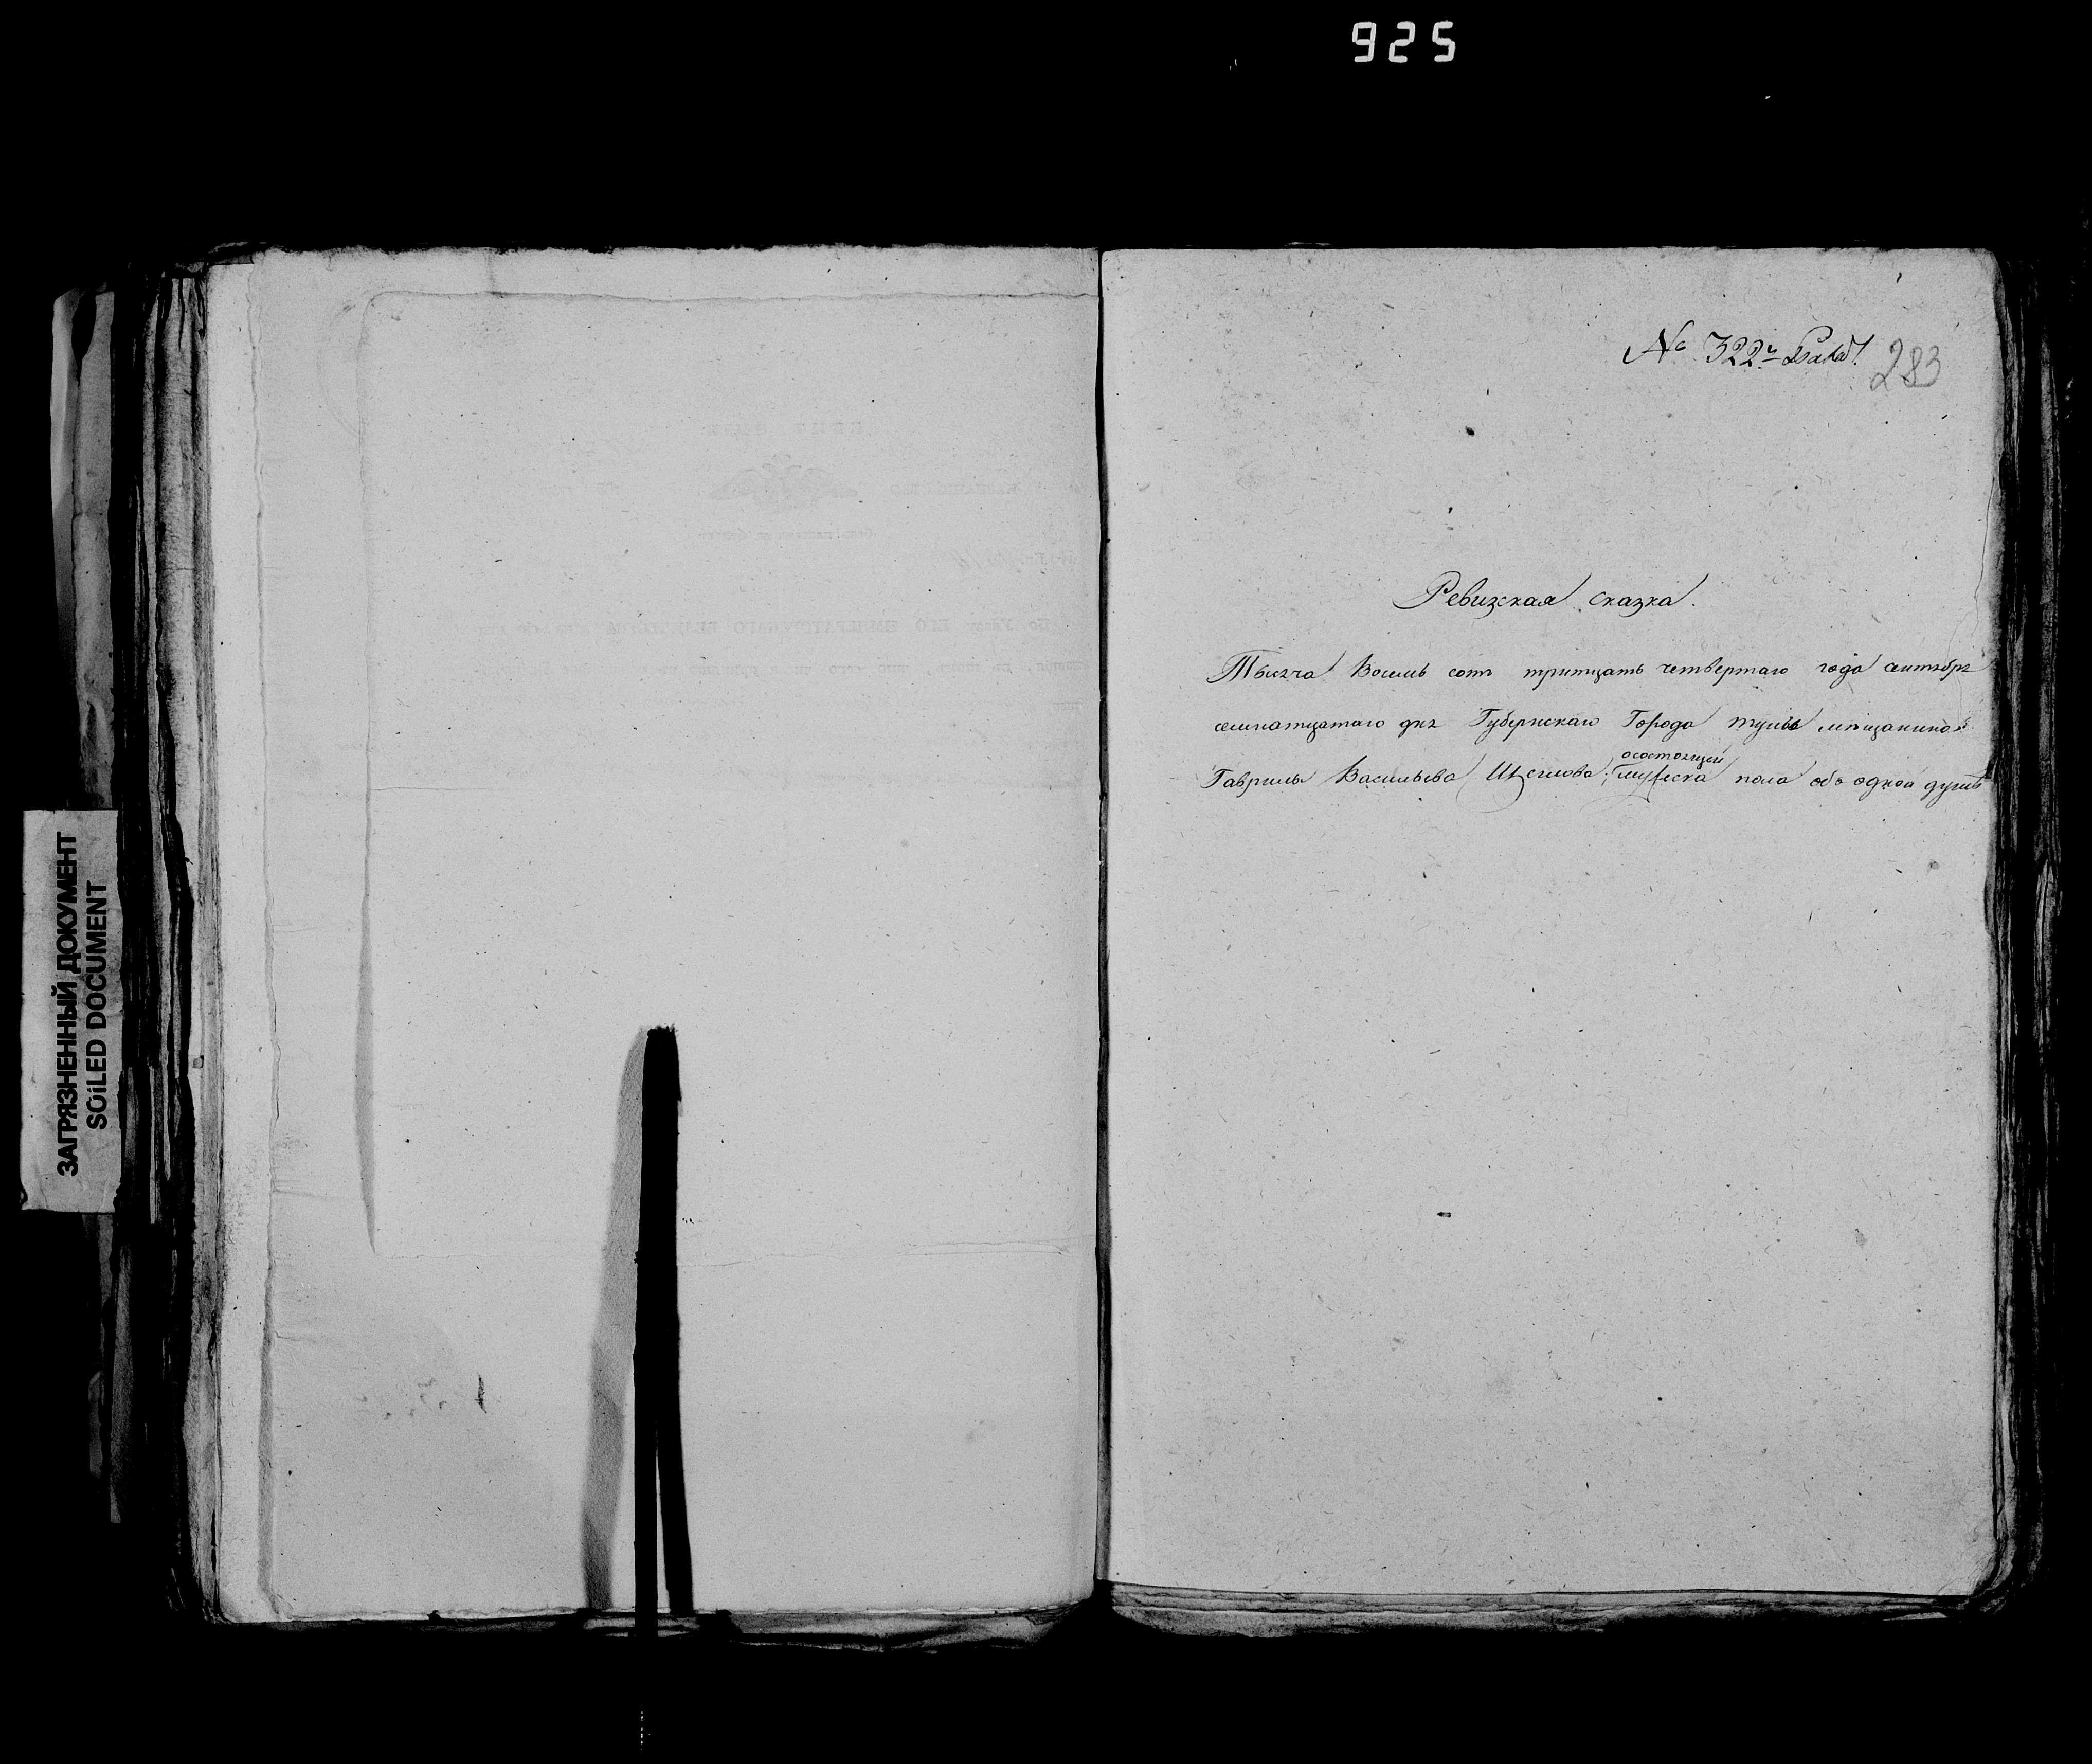 925
ЗАГРЯЗНЕННЫЙ ДОКУМЕНТ
SOiLED DOCUMENT
№ 322й
283
Ревизская сказка.
Тысяча Восемь сотъ тритцать четвертаго года сентября
семнатцатаго дня Губернскаго Города тулы мѣщанина
осостоящей
Гаврилы Васильева Щеглова, мужеска пола объ одной душѣ